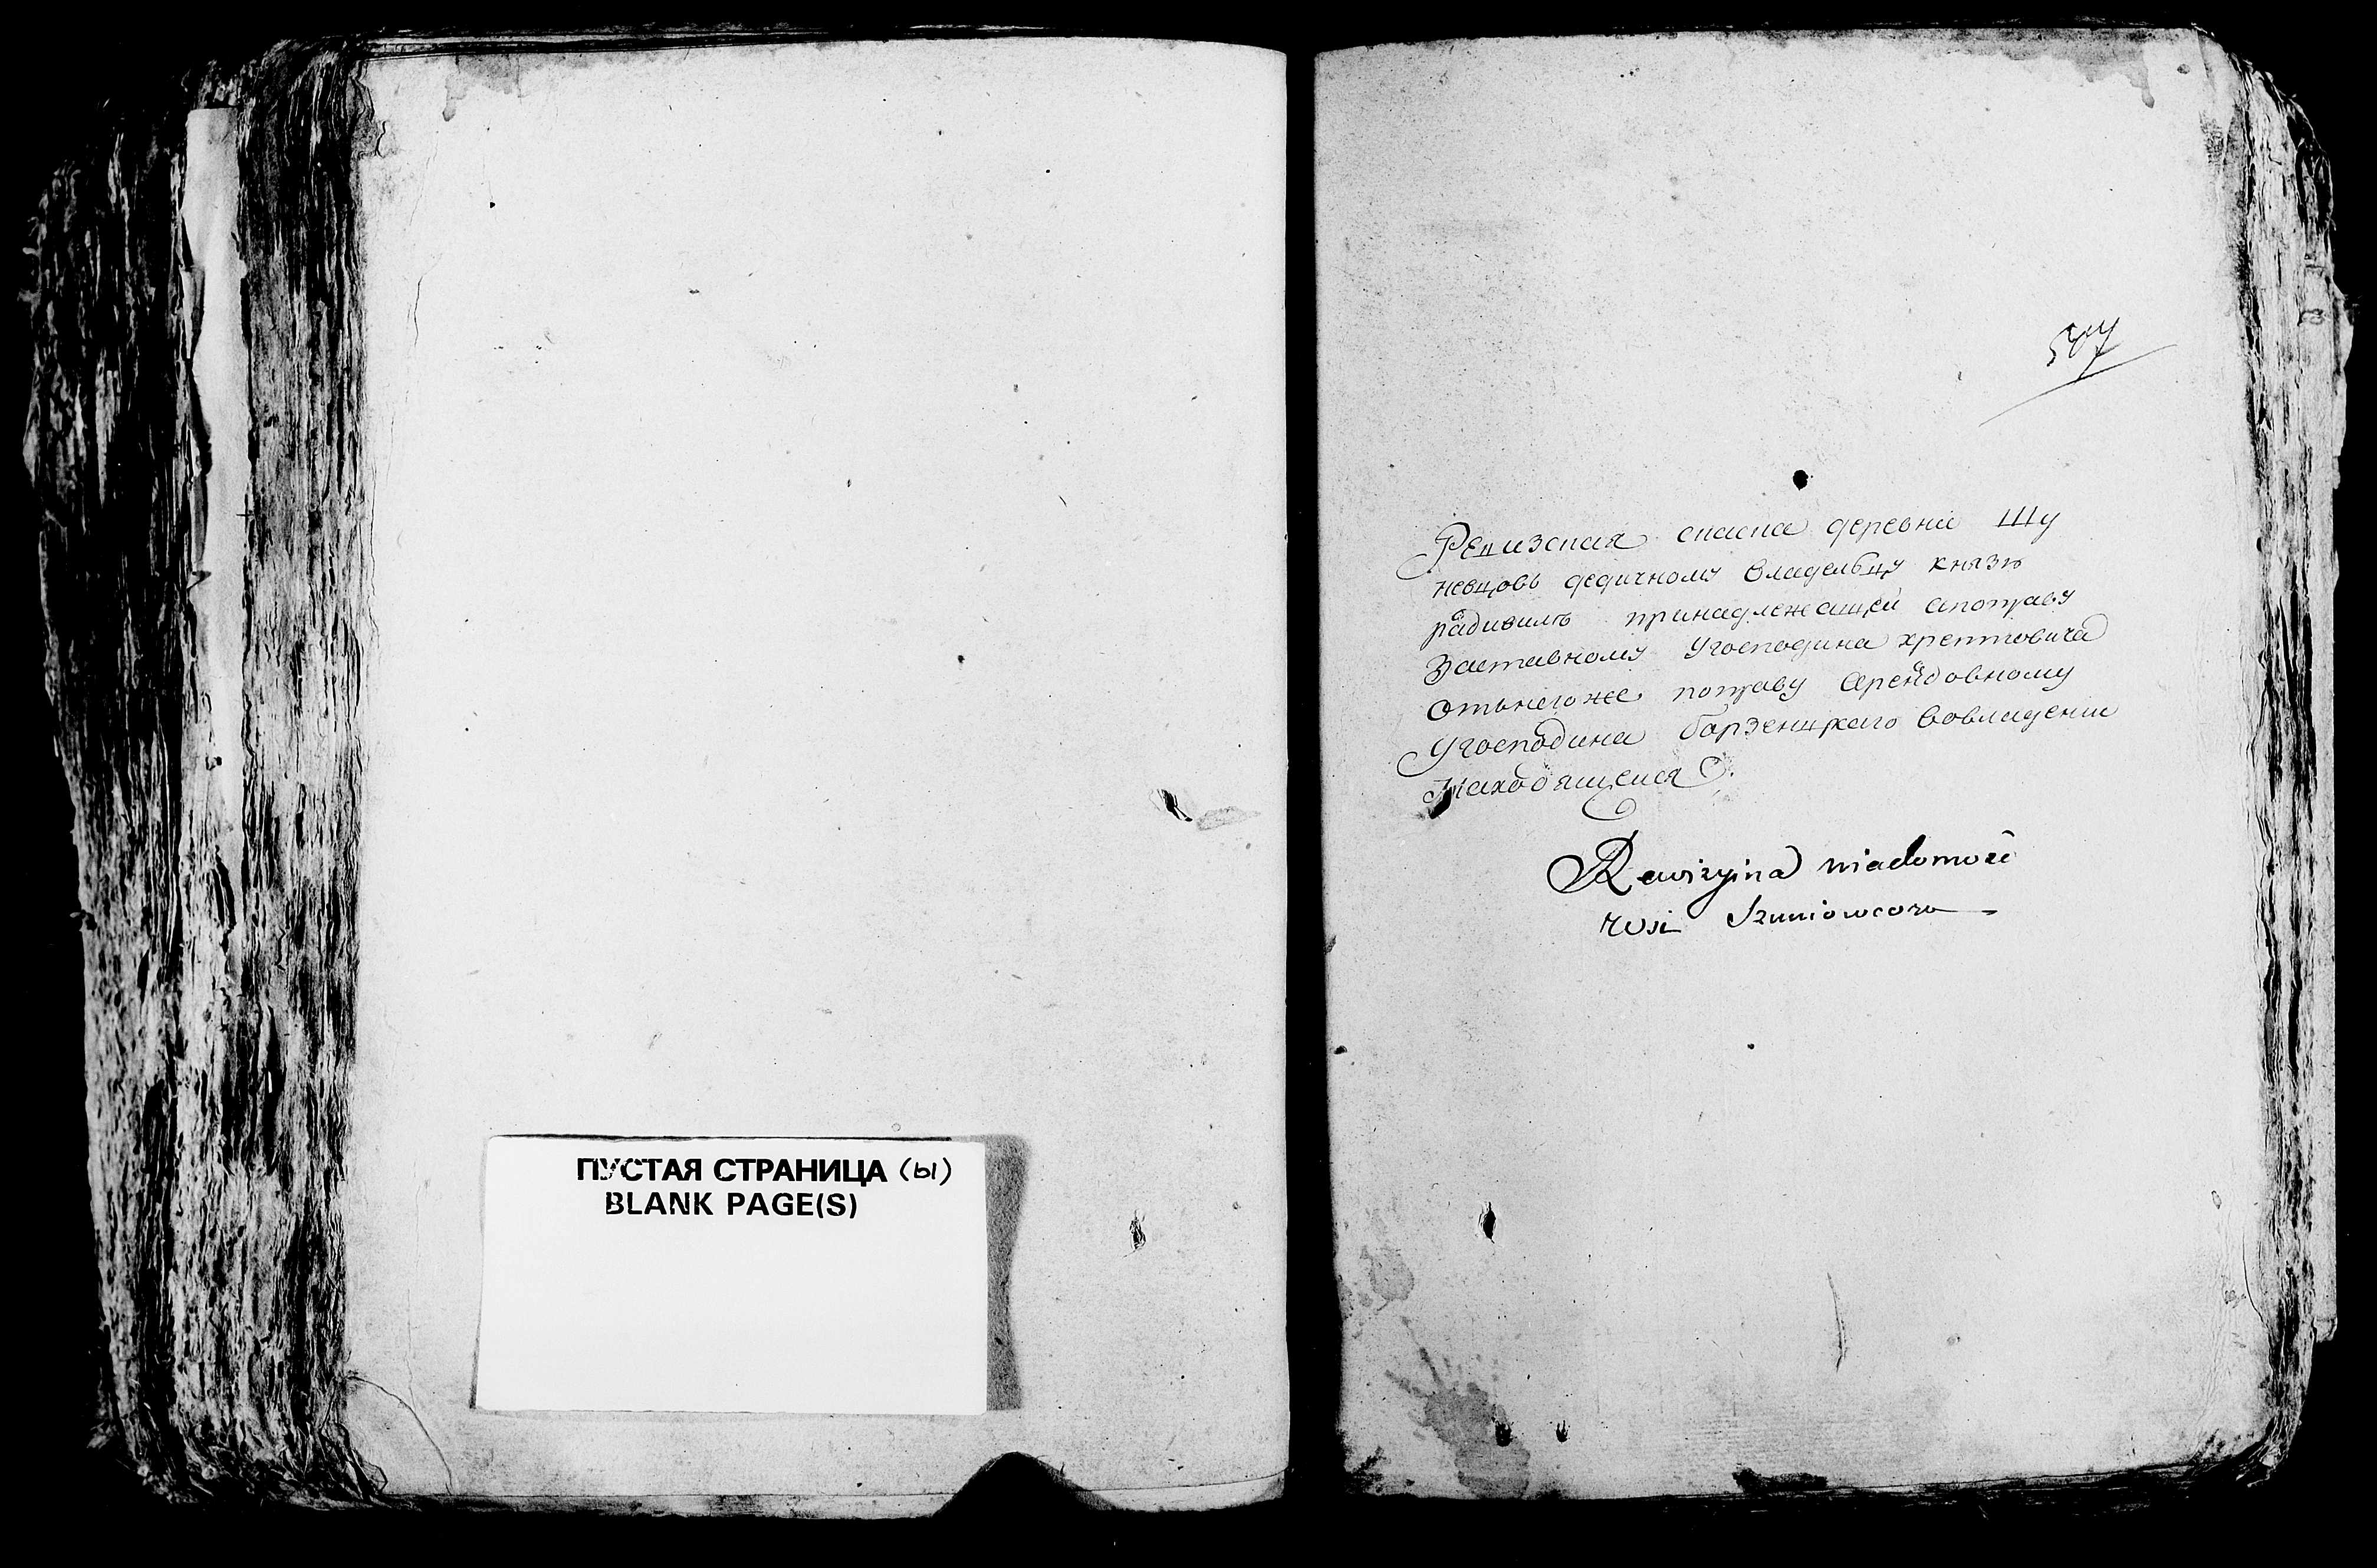 ПУСТАЯ СТРАНИЦА (ы)
BLANK PAGE(S)
Ревизская сказка деревни Шу
невцовъ дедичному владельцу князю
радивилъ принадлежащей апоправу
Заставному Угосподина хрептовича
Отьнегоже поправу арендовному
Угосподина борзенцкаго вовладении
Находящеися
Rewizyina wiadomość
wsi Szuniowcow